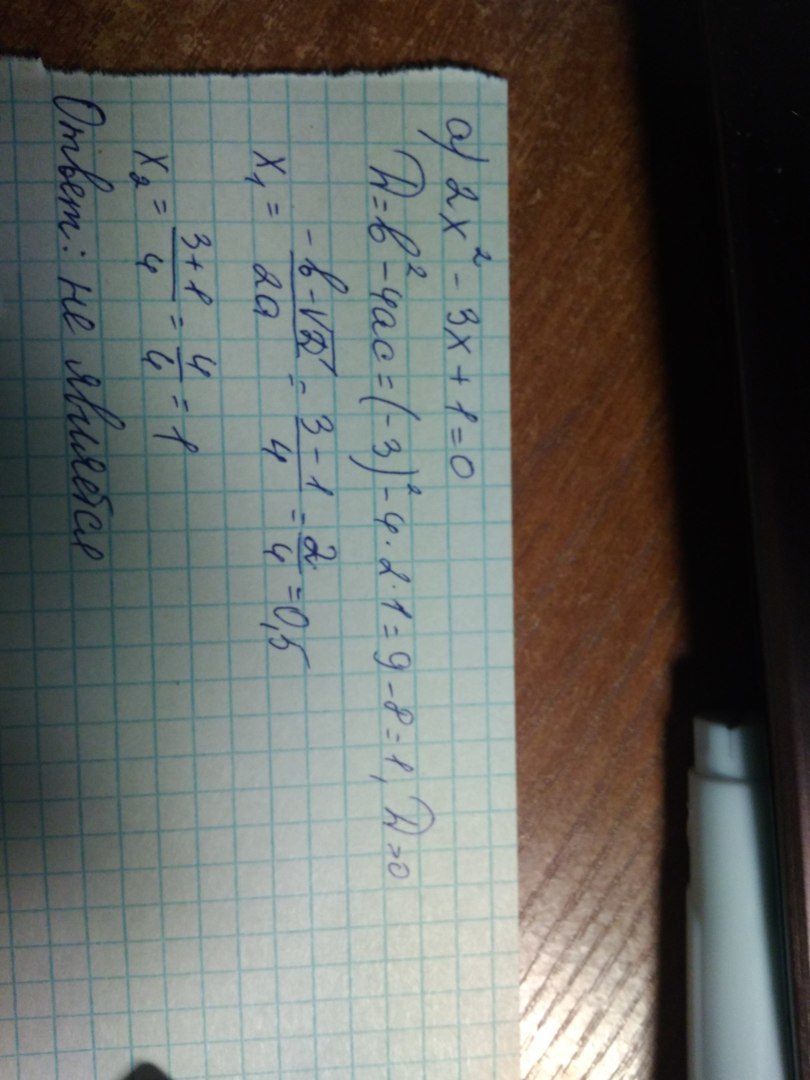 а) 2x² - 3x + 1 = 0
D = b² - 4ac = (-3)² - 4·2·1 = 9 - 8 = 1, D > 0
x₁ = (-b - √D)/2a = (3 - 1)/4 = 2/4 = 0,5
x₂ = (3 + 1)/4 = 4/4 = 1
Ответ: не является